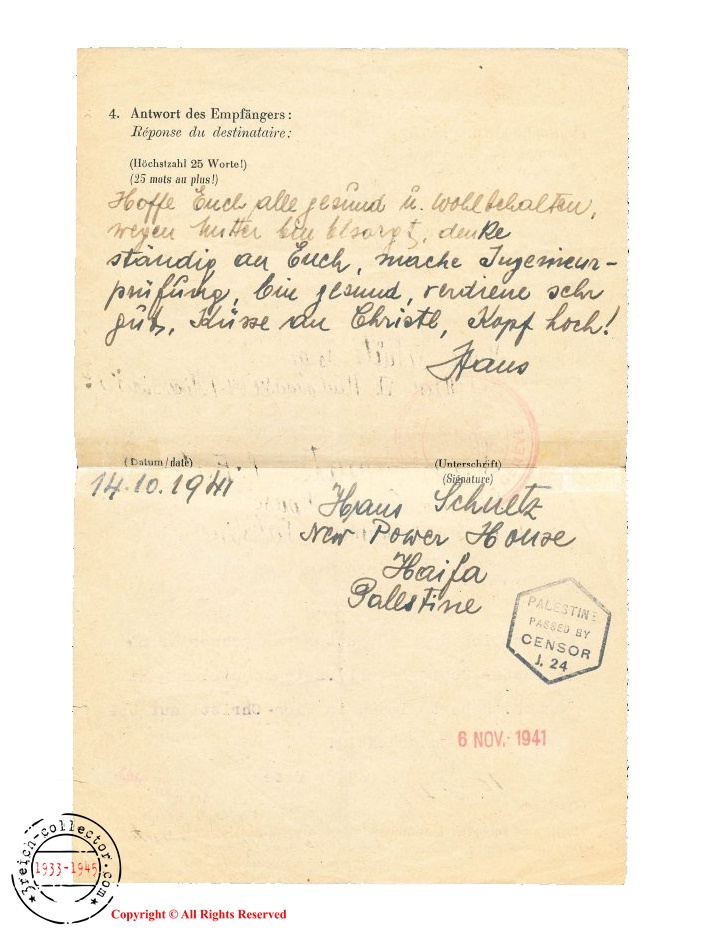 4. Antwort des Empfängers:
Réponse du destinataire:
(Höchstzahl 25 Worte!)
(25 mots au plus!)
Hoffe Euch alle gesund u. wohlbehalten,
wegen Mutter bin besorgt, denke
ständig an Euch, mache Ingenieur-
prüfung, bin gesund, verdiene sehr
gut, Küsse an Christl, Kopf hoch!
Hans
(Datum/date)
(Unterschrift)
(Signature)
14.10.1941
Hans Schultz
New Power House
Haifa
Palestine
PALESTINE
PASSED BY
CENSOR
J. 24
6 NOV. 1941
3reich-collector.com
1933-1945
Copyright © All Rights Reserved